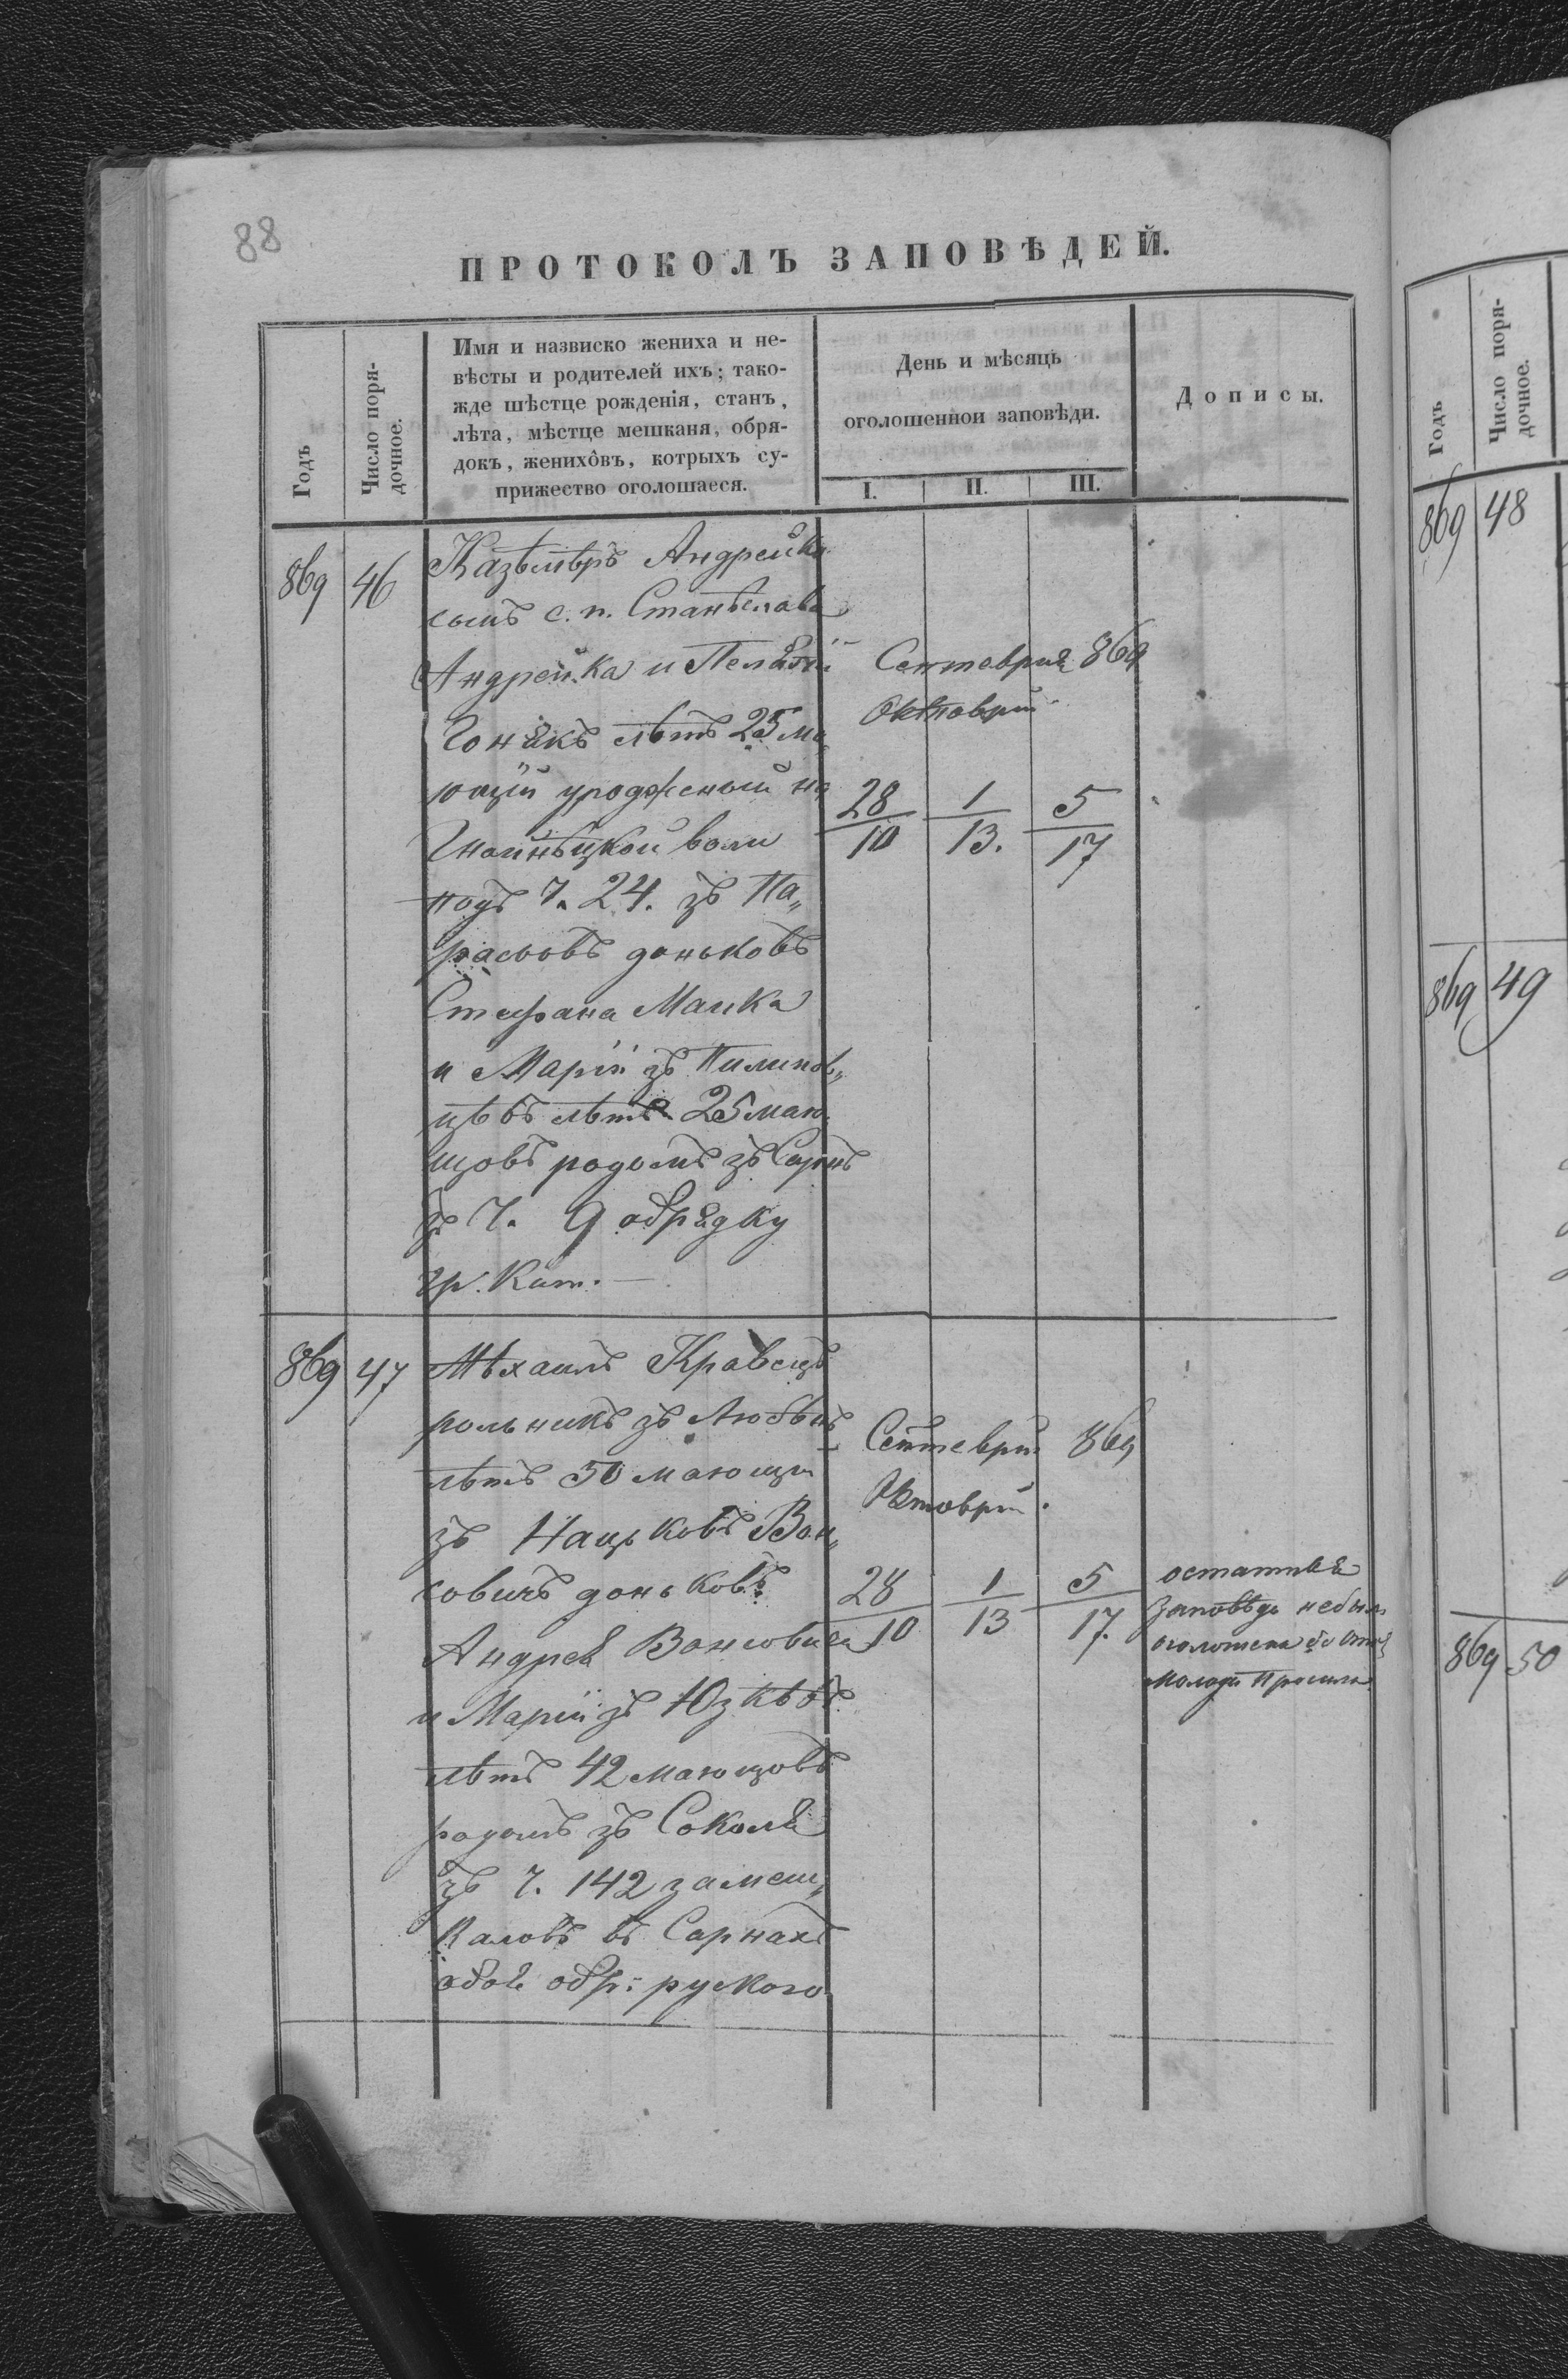 88
ПРОТОКОЛЪ ЗАПОВѢДЕЙ.
Годъ
Число поря-
дочное.
Имя и назвиско жениха и не-
вѣсты и родителей ихъ; тако-
жде мѣстце рожденія, станъ,
лѣта, мѣстце мешканя, обря-
докъ, женихôвъ, котрыхъ су-
прижество оголошаеся.
День и мѣсяць
оголошеннои заповѣди.
I. II. III.
Дописы.
869 46
Казѣмѣръ Андрейка
сынъ с. п. Станѣслава
Андрейка и
лѣтъ 25 ма
ющій уродженый на
воли
подъ ч. 24. зъ Па„
расковъ доньковъ
Стефана Маика
и Маріи зъ
лѣтъ 25 маю
щовъ родомъ зъ Сарнъ
ч. 9 обрядку
гр. Кат. —
Септеврія 869
Октоврій
28 1 5
10 13. 17
869 47
Мѣхаилъ Кравецъ
рольникъ зъ
лѣтъ 50 мающи
зъ Нацьковъ Вон„
совичъ доньковъ
Андрея Вонсовича
и Маріи зъ
лѣтъ 42 мающовъ
родомъ зъ Соколя
зъ ч. 142 замеш„
каловъ въ Сарнахъ
обое обр: руского
Септеврій 869
Октоврій.
28 1 5
10 13 17.
остатняя
заповѣдь небыла
оголошена бо
молоди просили
Годъ
Число поря-
дочное.
869 48
869 49
869 50